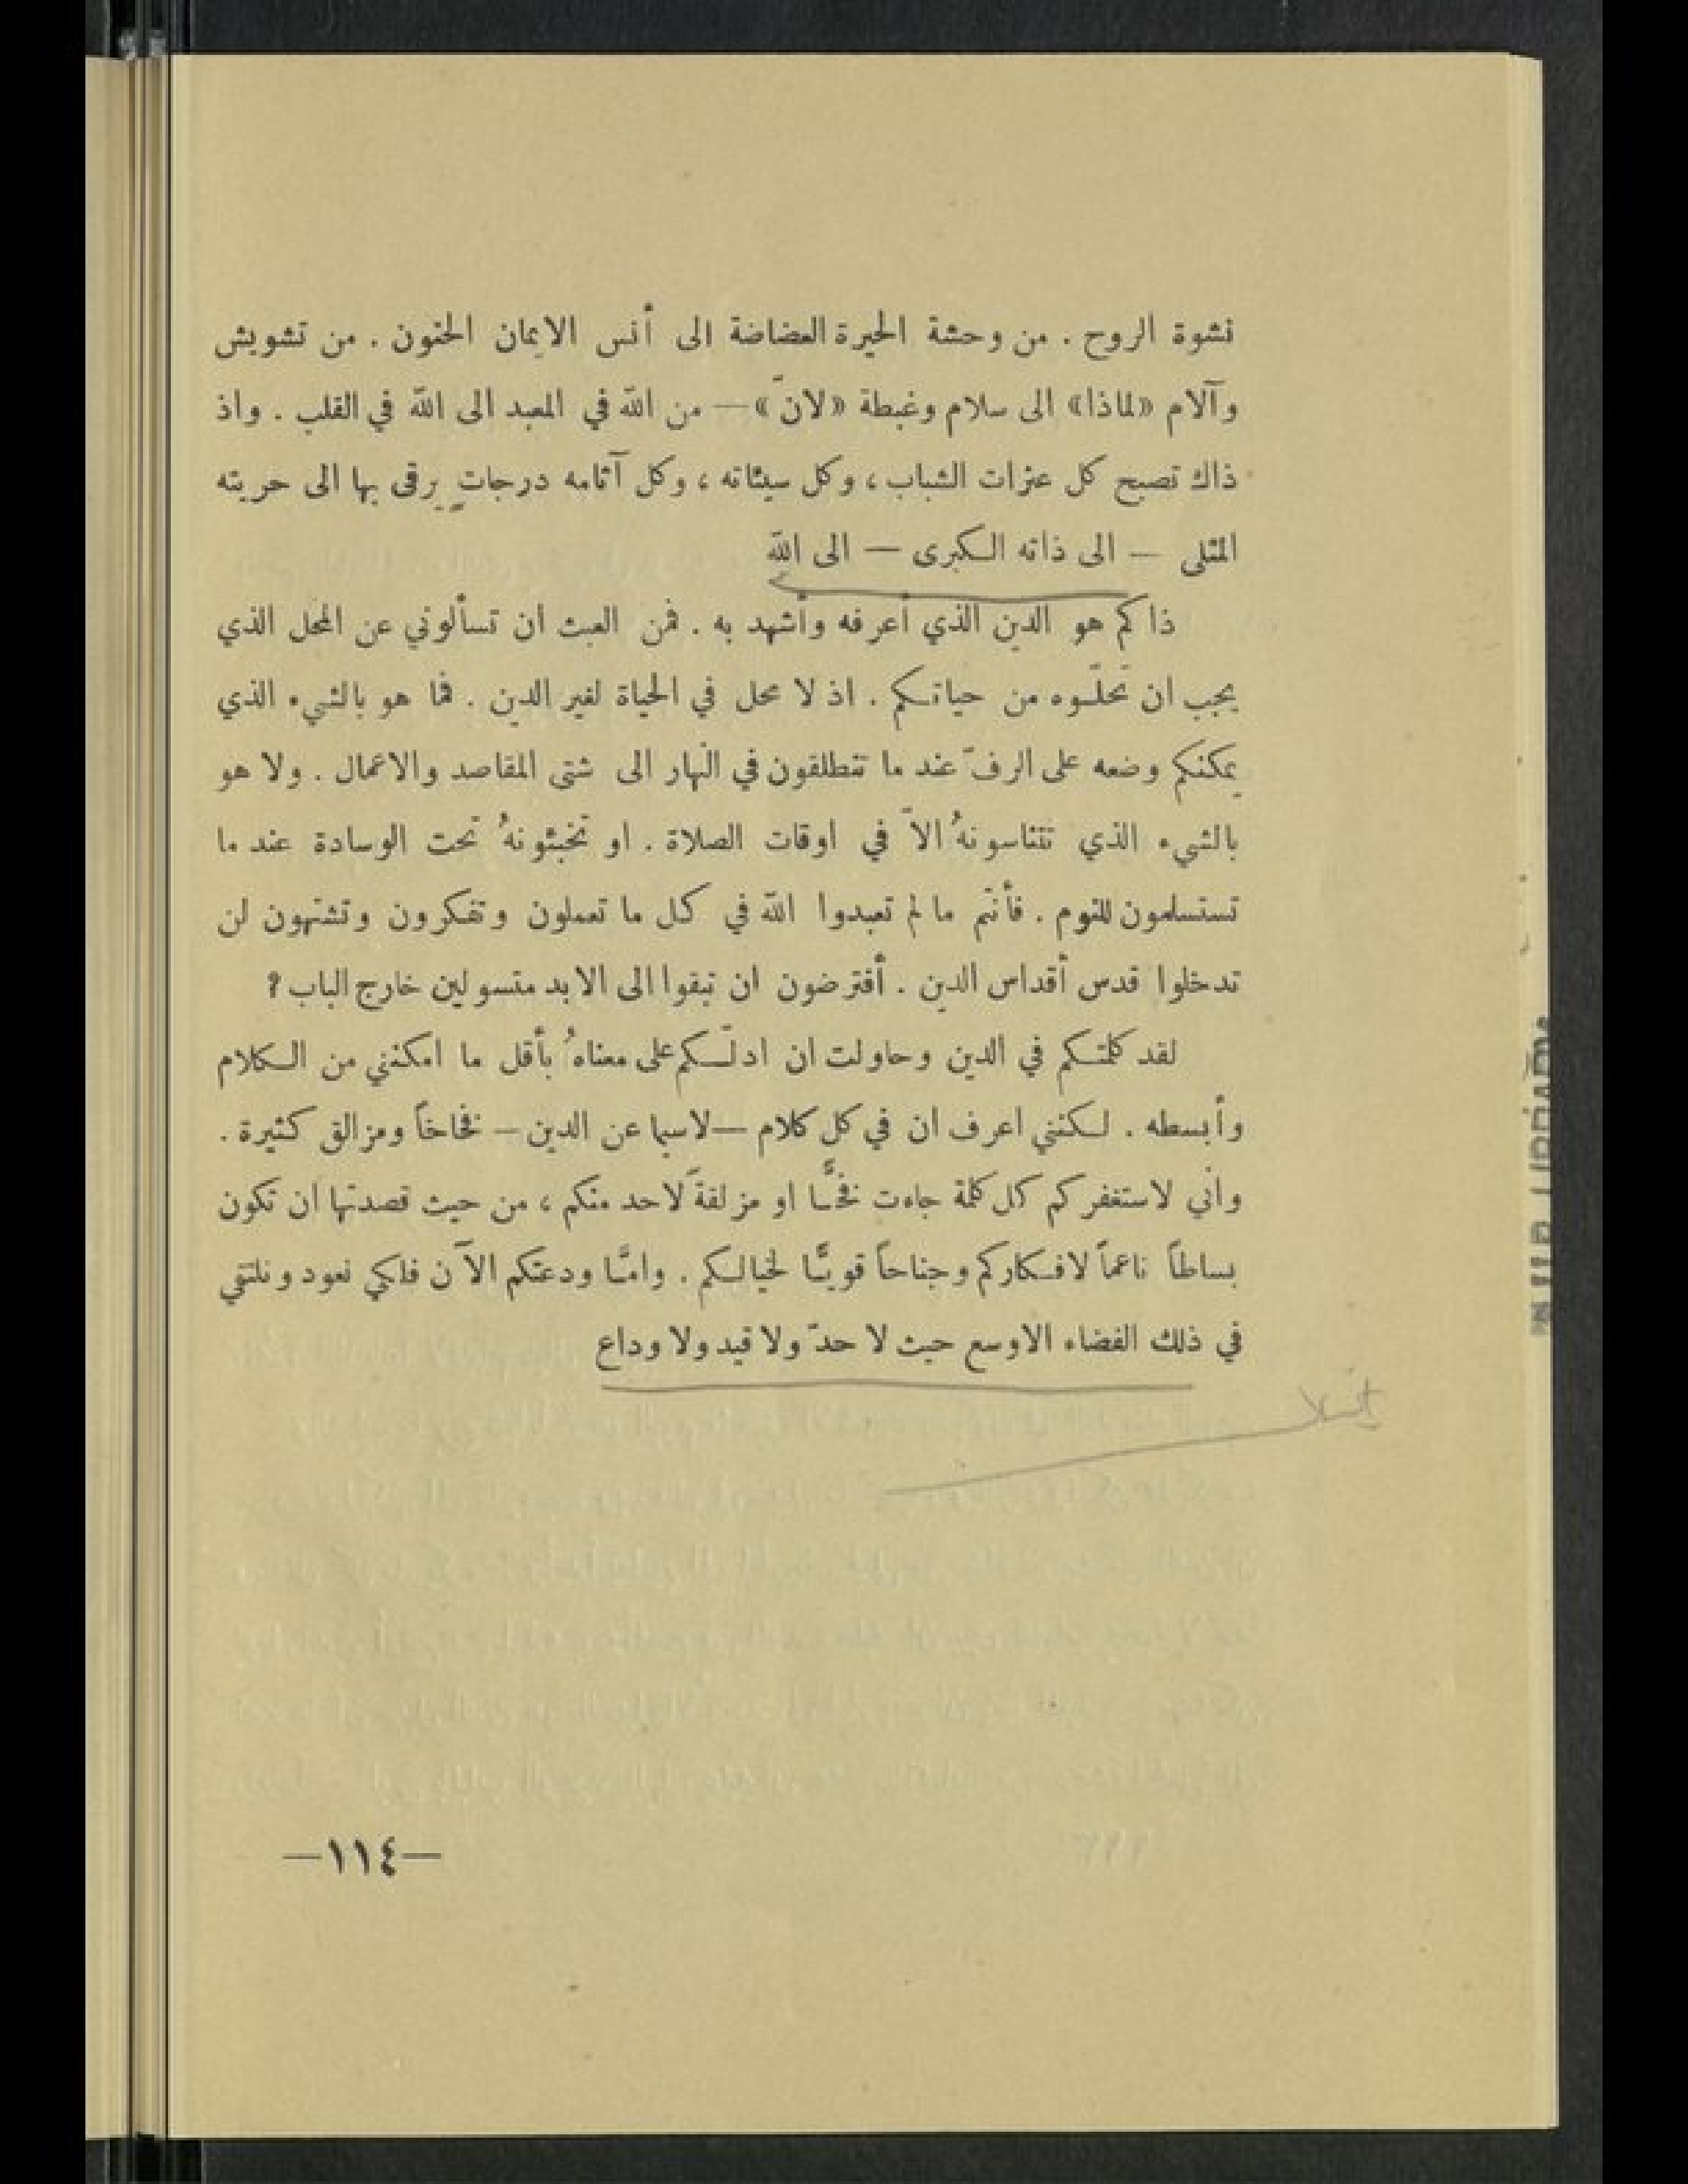 نشوة الروح . من وحشة الحيرة العضاضة الى أنس الايمان الحنون . من تشويش
وآلام «لماذا» الى سلام وغبطة «لانّ» — من الله في المعبد الى الله في القلب . واذ
ذاك تصبح كل عثرات الشباب ، وكل سيئاته ، وكل آثامه درجاتٍ يرقى بها الى حريته
المثلى — الى ذاته الكبرى — الى الله
ذاكم هو الدين الذي أعرفه وأشهد به . فمن العبث ان تسألوني عن المحل الذي
يجب ان تحلّوه من حياتكم . اذ لا محل في الحياة لغير الدين . فما هو بالشيء الذي
يمكنكم وضعه على الرفّ عند ما تنطلقون في النهار الى شتى المقاصد والاعمال . ولا هو
بالشيء الذي تتناسونهُ الاّ في اوقات الصلاة . او تخبئونهُ تحت الوسادة عند ما
تستسلمون للنوم . فأنتم ما لم تعبدوا الله في كل ما تعملون وتفكرون وتشتهون لن
تدخلوا قدس أقداس الدين . أفترضون ان تبقوا الى الابد متسولين خارج الباب ؟
لقد كلمتكم في الدين وحاولت ان ادلّكم على معناهُ بأقل ما امكنني من الكلام
وأبسطه . لكنني اعرف ان في كل كلام — لاسيما عن الدين — فخاخاً ومزالق كثيرة .
واني لاستغفركم كل كلمة جاءت فخًّا او مزلقةً لاحد منكم ، من حيث قصدتها ان تكون
بساطاً ناعماً لافكاركم وجناحاً قويًّا لخيالكم . وامّا ودعتكم الآن فلكي نعود ونلتقي
في ذلك الفضاء الاوسع حيث لا حدّ ولا قيد ولا وداع
—١١٤—